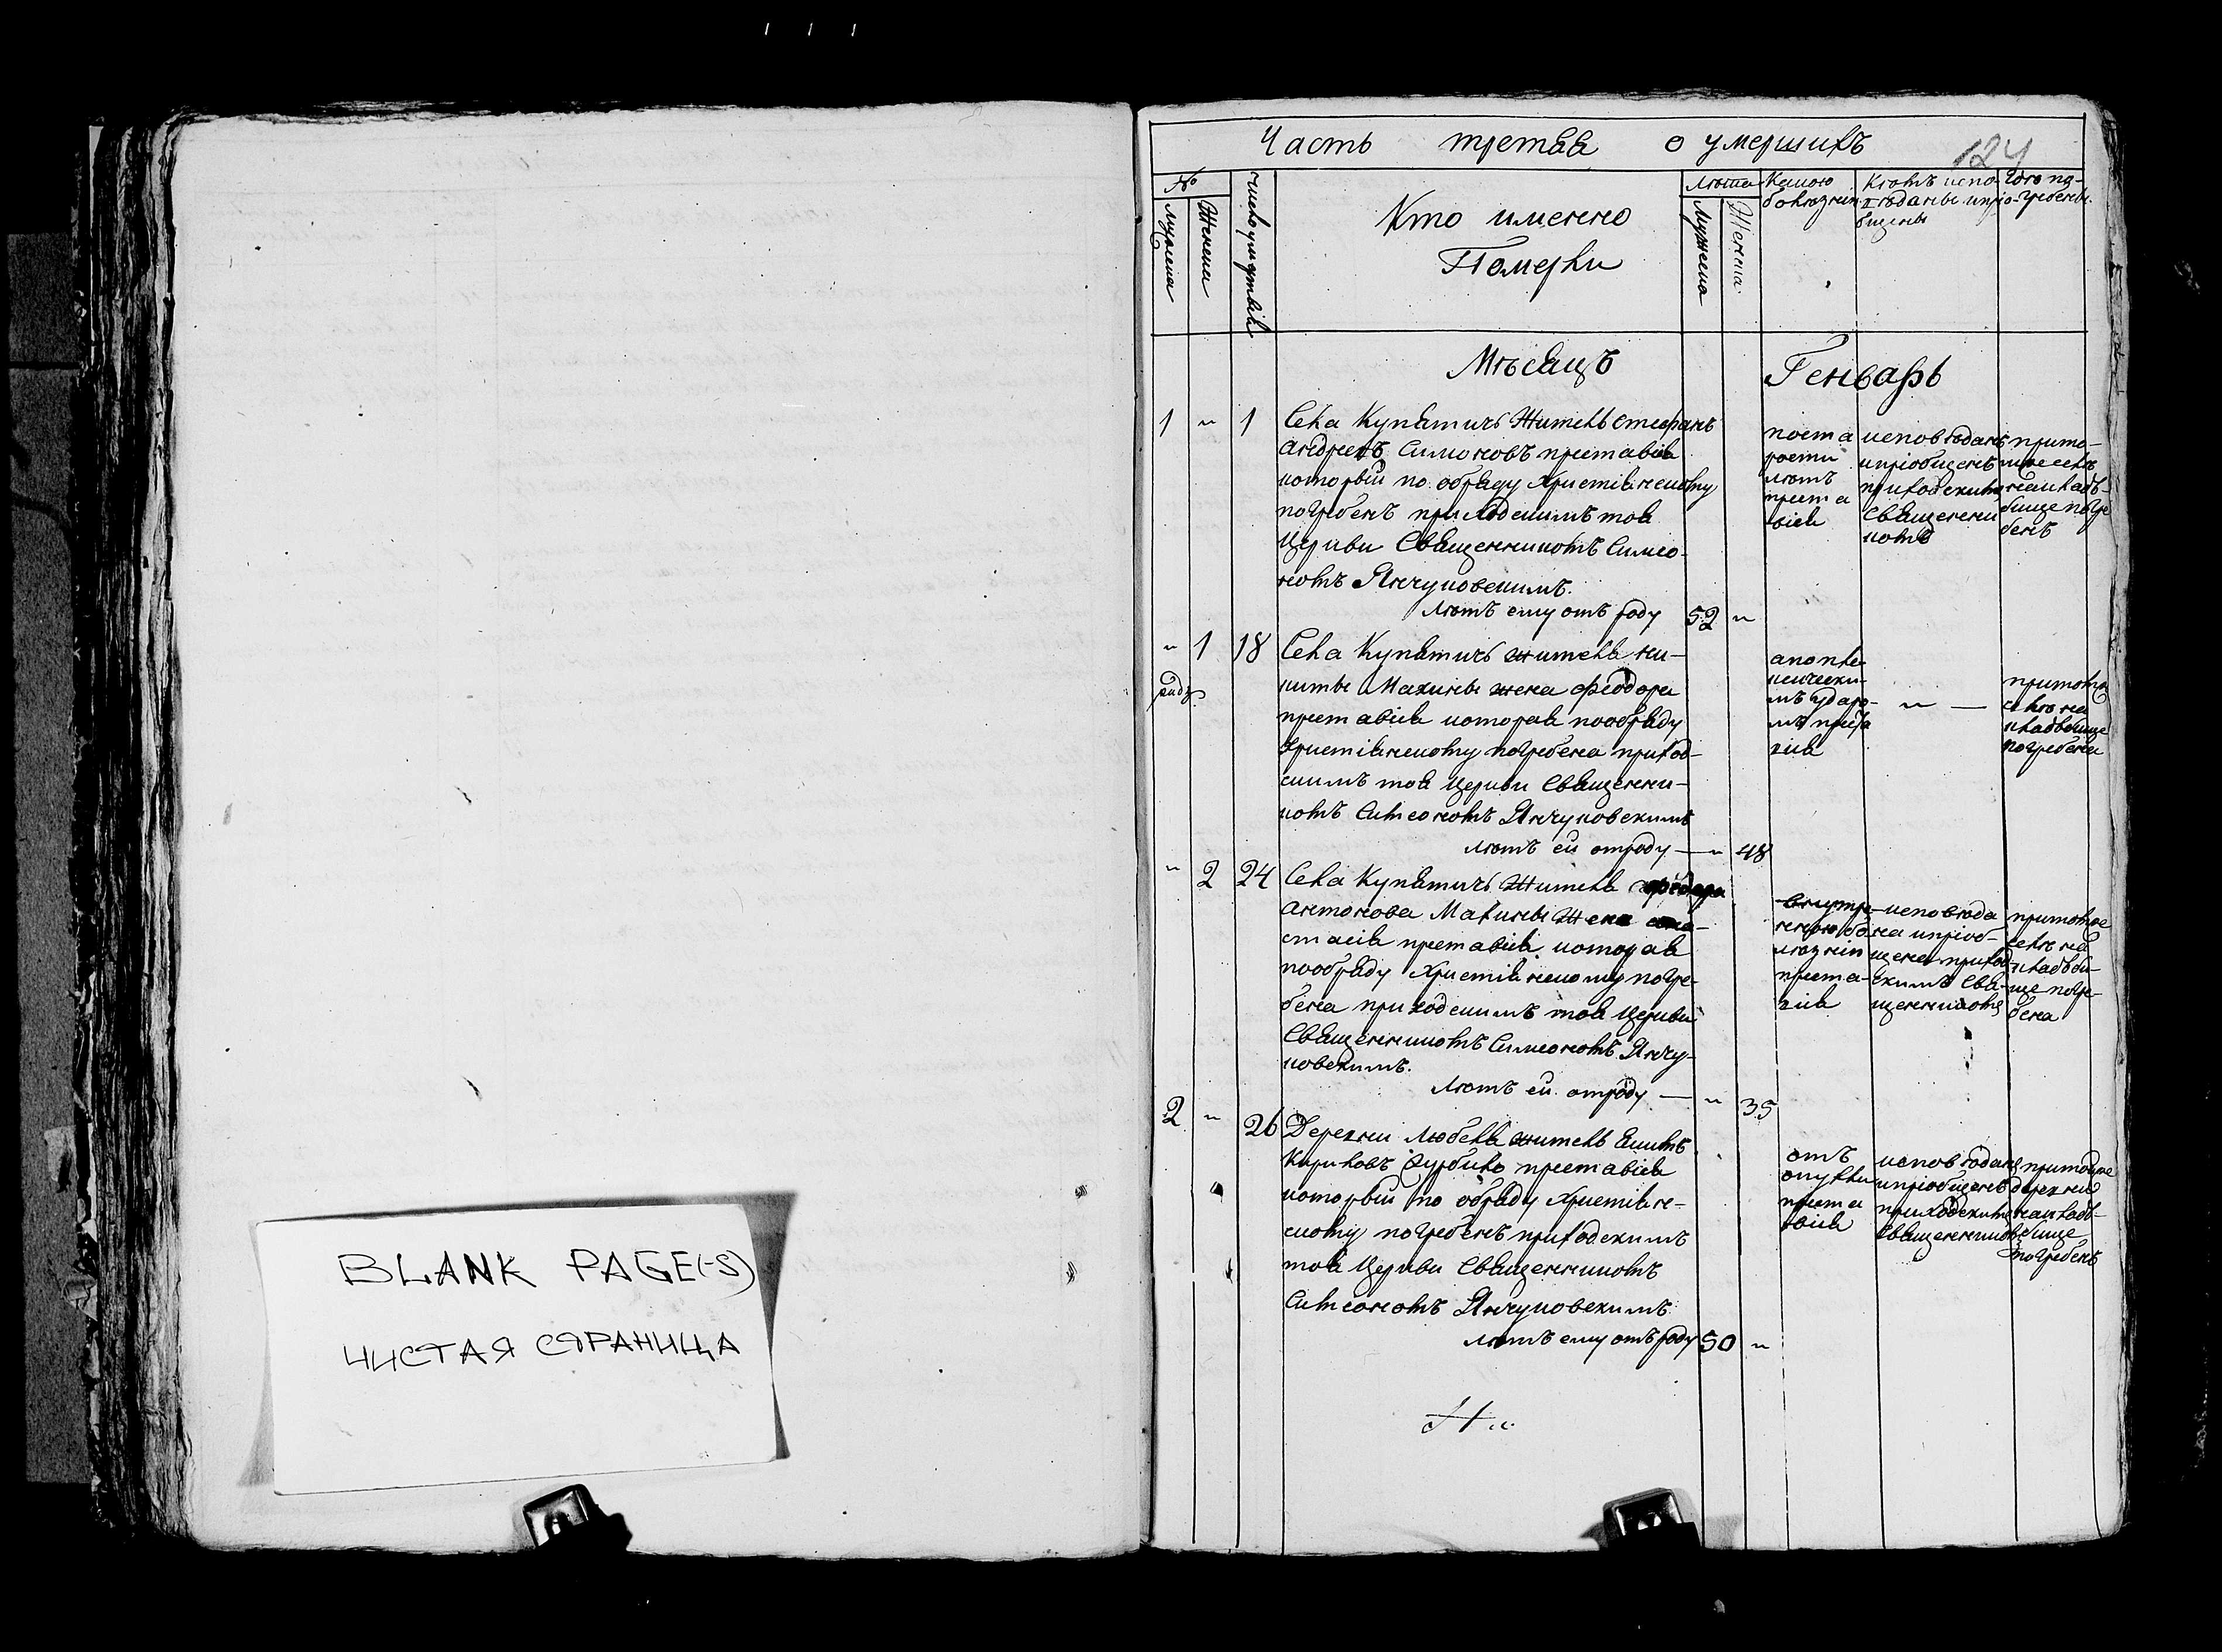 BLANK PAGE(-S)
ЧИСТАЯ СТРАНИЦА
Часть третая о умершихъ
124
№
Мужеска
Женска
число умертвія
Кто именно
Померли
Лѣта
Мужеска
Женска
Какою
болѣзнію
Кѣмъ испо-
вѣданы и прiо-
бщены
Гдѣ по-
гребены
Мѣсяцъ Генварь
1 " 1 Села Купятичъ Житель Стефанъ
Андреевъ Симоновъ преставися
который по обряду христіянскому
погребенъ приходскимъ тоя
Церкви Священникомъ Симео-
номъ Янчуковскимъ.
Лѣтъ ему отъ роду 52 "
по ста
рости
лѣтъ
преста
вися
исповѣданъ
и пріобщенъ
приходскимъ
Священни
комъ
при то-
мже селѣ
на кладъ-
бище погре
бенъ
" 1 18 Села Купятичъ жителя Ни-
киты Махины жена Феодора
преставися которая по обряду
Христіянскому погребена приход-
скимъ тоя Церкви Священни-
комъ Симеономъ Янчуковскимъ
Лѣтъ ей отроду — " 48
апопле
ксически-
мъ ударо-
мъ преста
вися
" —
при томже
селѣ на
кладбище
погребена
" 2 24 Села Купятичъ Жителя
Антонова Махины Жена
стасія преставися которая
по обряду Христіянскому погре-
бена приходскимъ тоя Церкви
Священникомъ Симеономъ Янчу-
ковскимъ.
Лѣтъ ей отроду — " 35
внутре-
нею бо-
лѣзнію
преста-
вися
исповѣда
на и пріоб-
щена приход-
скимъ Свя-
щенникомъ
при томже
селѣ на
кладъби-
ще погре-
бена
2 " 26 Деревни Любеля житель Екимъ
Кириловъ преставися
который по обряду Христіян-
скому погребенъ приходскимъ
тоя Церкви Священникомъ
Симеономъ Янчуковскимъ
Лѣтъ ему отъ роду 50 "
отъ
опухли
преста
вися
исповѣданъ
и пріобщенъ
приходскимъ
Священникомъ
при тойже
деревни
на кладъ-
бище
погребенъ